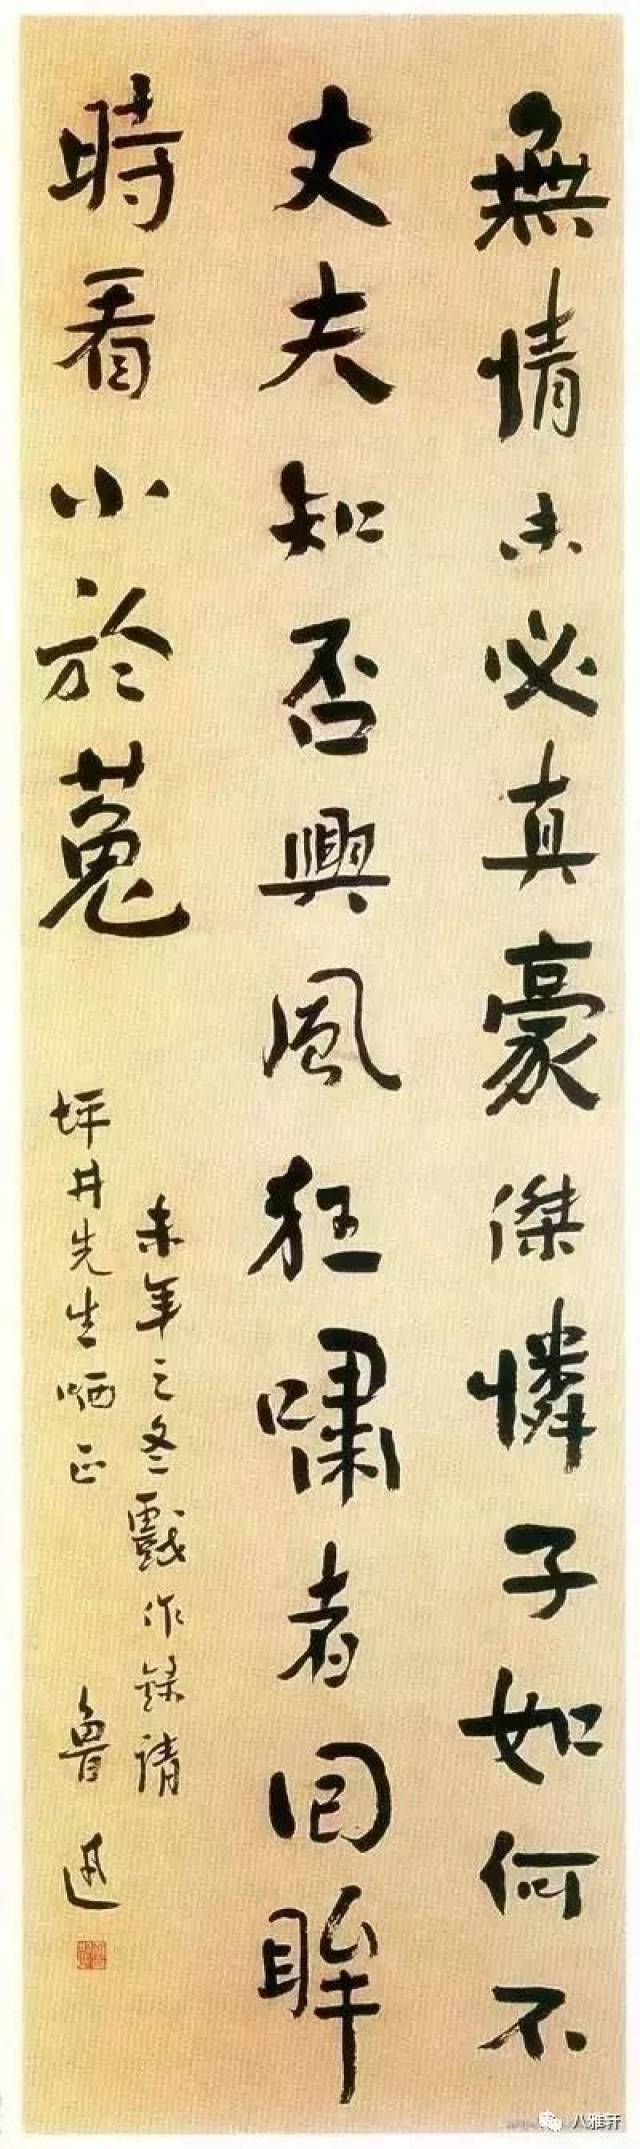 無情未必真豪傑憐子如何不
丈夫知否興風狂嘯者回眸
時看小於菟
未年之冬戲作錄請
坪井先生哂正
魯迅
八雅轩